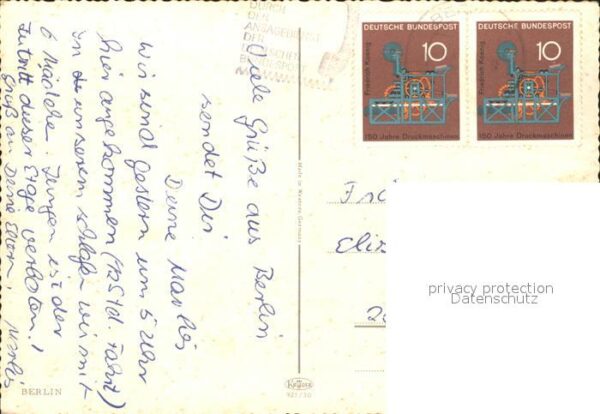 DURCH
DEN
ANSAGEDIENST
DER
DEUTSCHEN
BUNDESPOST
Viele Grüße aus Berlin
sendet Dir
Deine Marlis
Wir sind gestern um 5 Uhr
hier angekommen (12 Std. Fahrt)
In unserem schlafen wir mit
6 Mädchen. Jungen ist der
Zutritt dieser Etage verboten!
Gruß an Deine Eltern, Marlis
BERLIN
Made in Western-Germany
Krüger
921/30
DEUTSCHE BUNDESPOST
10
Friedrich Koenig
150 Jahre Druckmaschinen
DEUTSCHE BUNDESPOST
10
Friedrich Koenig
150 Jahre Druckmaschinen
privacy protection
Datenschutz